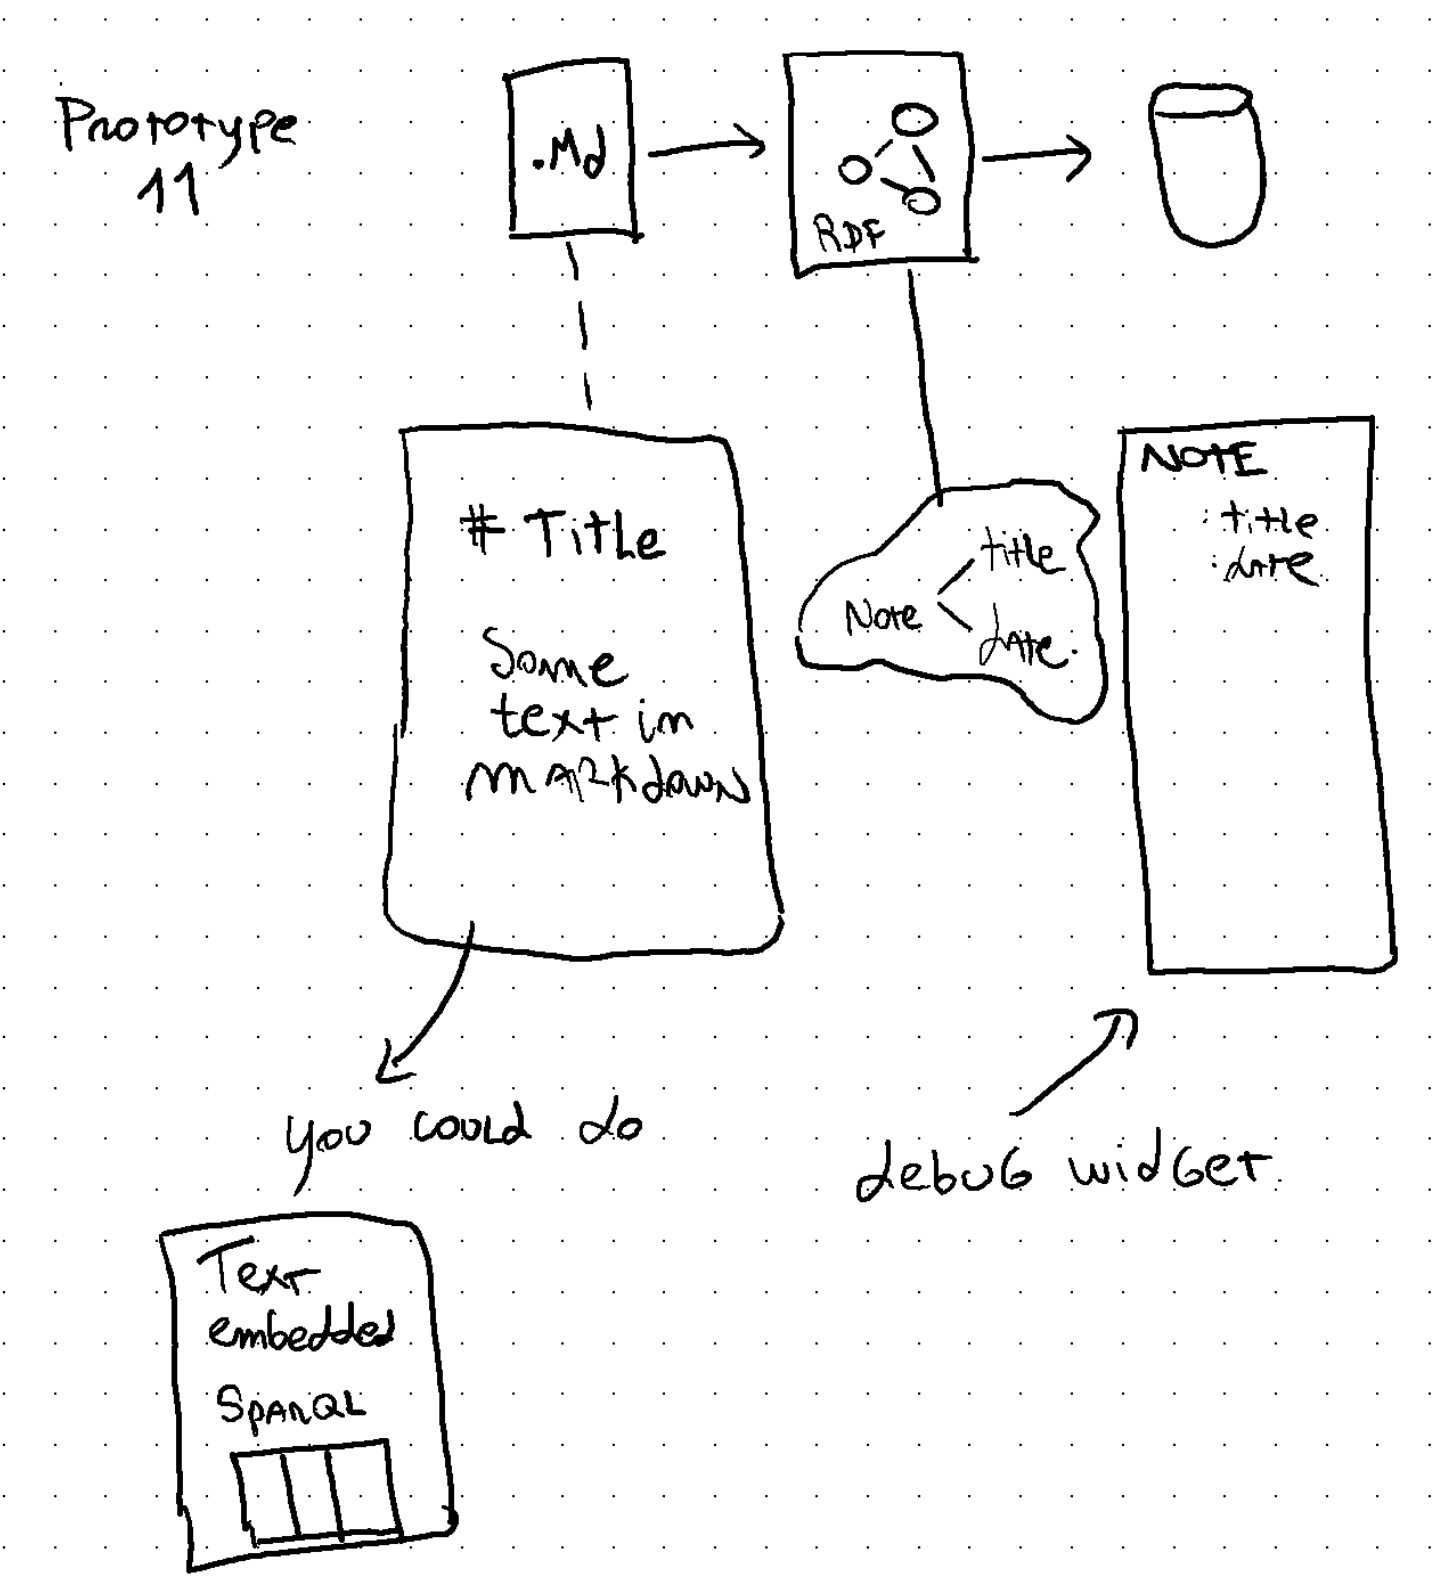 Prototype
11
.Md
RDF
# Title
Some
text in
markdown
Note
title
date.
NOTE
: title
: date
you could do
debug widget
Text
embedded
SPARQL